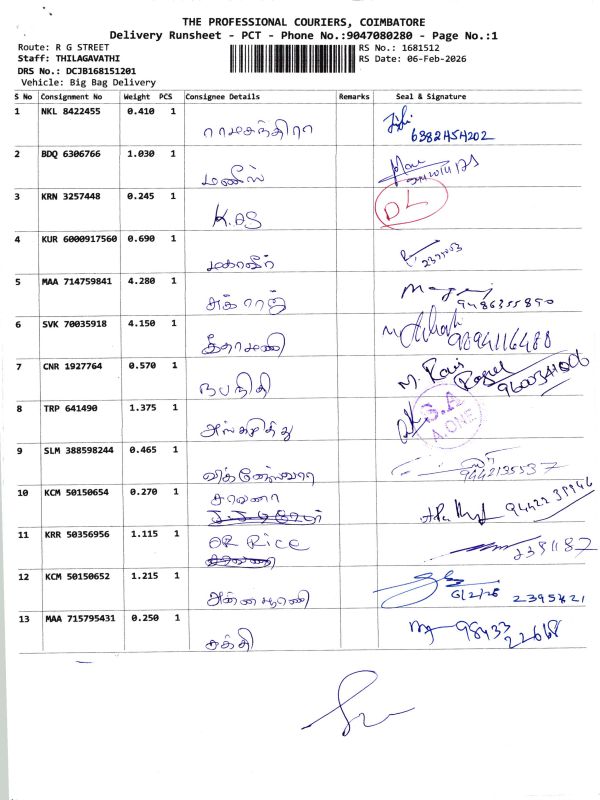 THE PROFESSIONAL COURIERS, COIMBATORE
Delivery Runsheet - PCT - Phone No.:9047080280 - Page No.:1
Route: R G STREET
RS No.: 1681512
Staff: THILAGAVATHI
RS Date: 06-Feb-2026
DRS No.: DCJB168151201
Vehicle: Big Bag Delivery
S No Consignment No Weight PCS Consignee Details Remarks Seal & Signature
1 NKL 8422455 0.410 1 ராமசந்திரா
2 BDQ 6306766 1.030 1 மணீஸ்
3 KRN 3257448 0.245 1 K.OS DL
4 KUR 6000917560 0.690 1 மகாவீர்
5 MAA 714759841 4.280 1 9486355890
6 SVK 70035918 4.150 1 கீதாமணி 9894116488
7 CNR 1927764 0.570 1 நபநிதி M. Ravi
8 TRP 641490 1.375 1 S.A A.ONE
9 SLM 388598244 0.465 1 9442135537
10 KCM 50150654 0.270 1 சரவணா
11 KRR 50356956 1.115 1 OR RICE
12 KCM 50150652 1.215 1 அன்னபூரணி 6/2/26
13 MAA 715795431 0.250 1 சக்தி 98433 22668